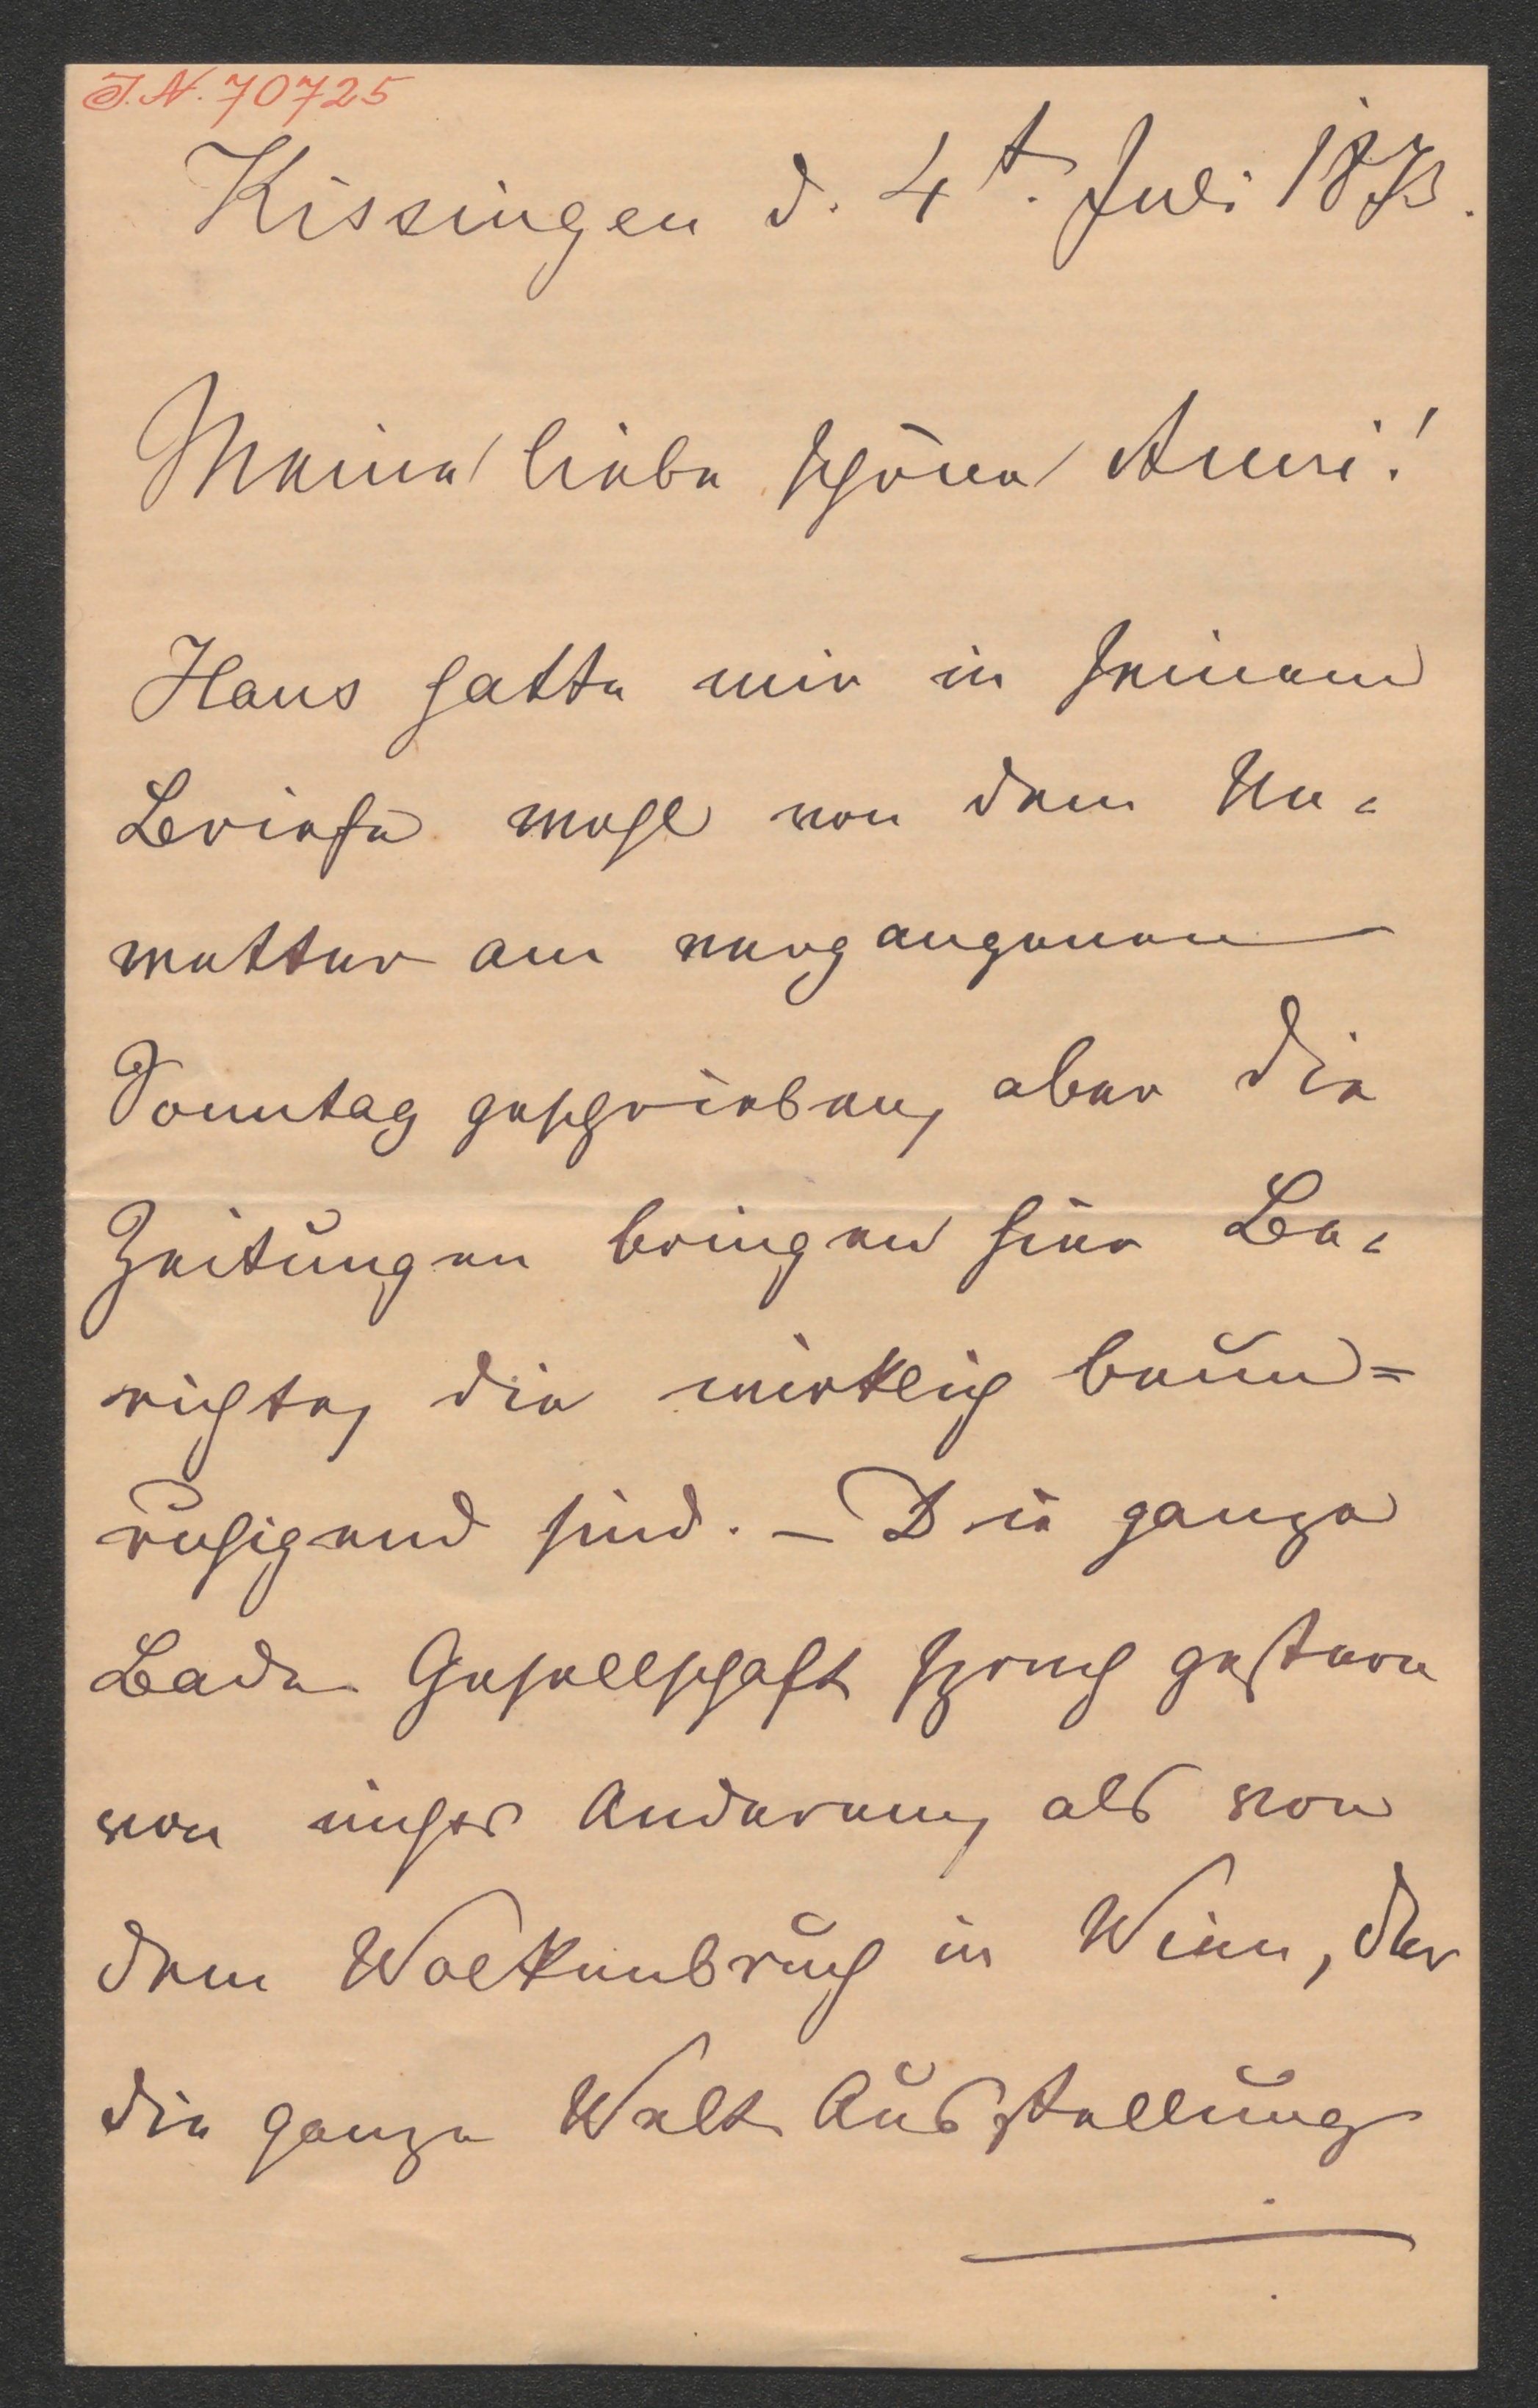 J.N. 70725
Kissingen d. 4t. Juli 1873.
Meine liebe schöne Anni!
Hans hatte mir in seinem
Briefe wohl von dem Un-
wetter am vergangenen
Sonntag geschrieben, aber die
Zeitungen bringen hier Be-
richte, die wirklich beun=
ruhigend sind. – Die ganze
Bade Gesellschaft sprach gestern
von nichts Anderem, als von
dem Wolkenbruch in Wien, der
die ganze Welt Ausstellung